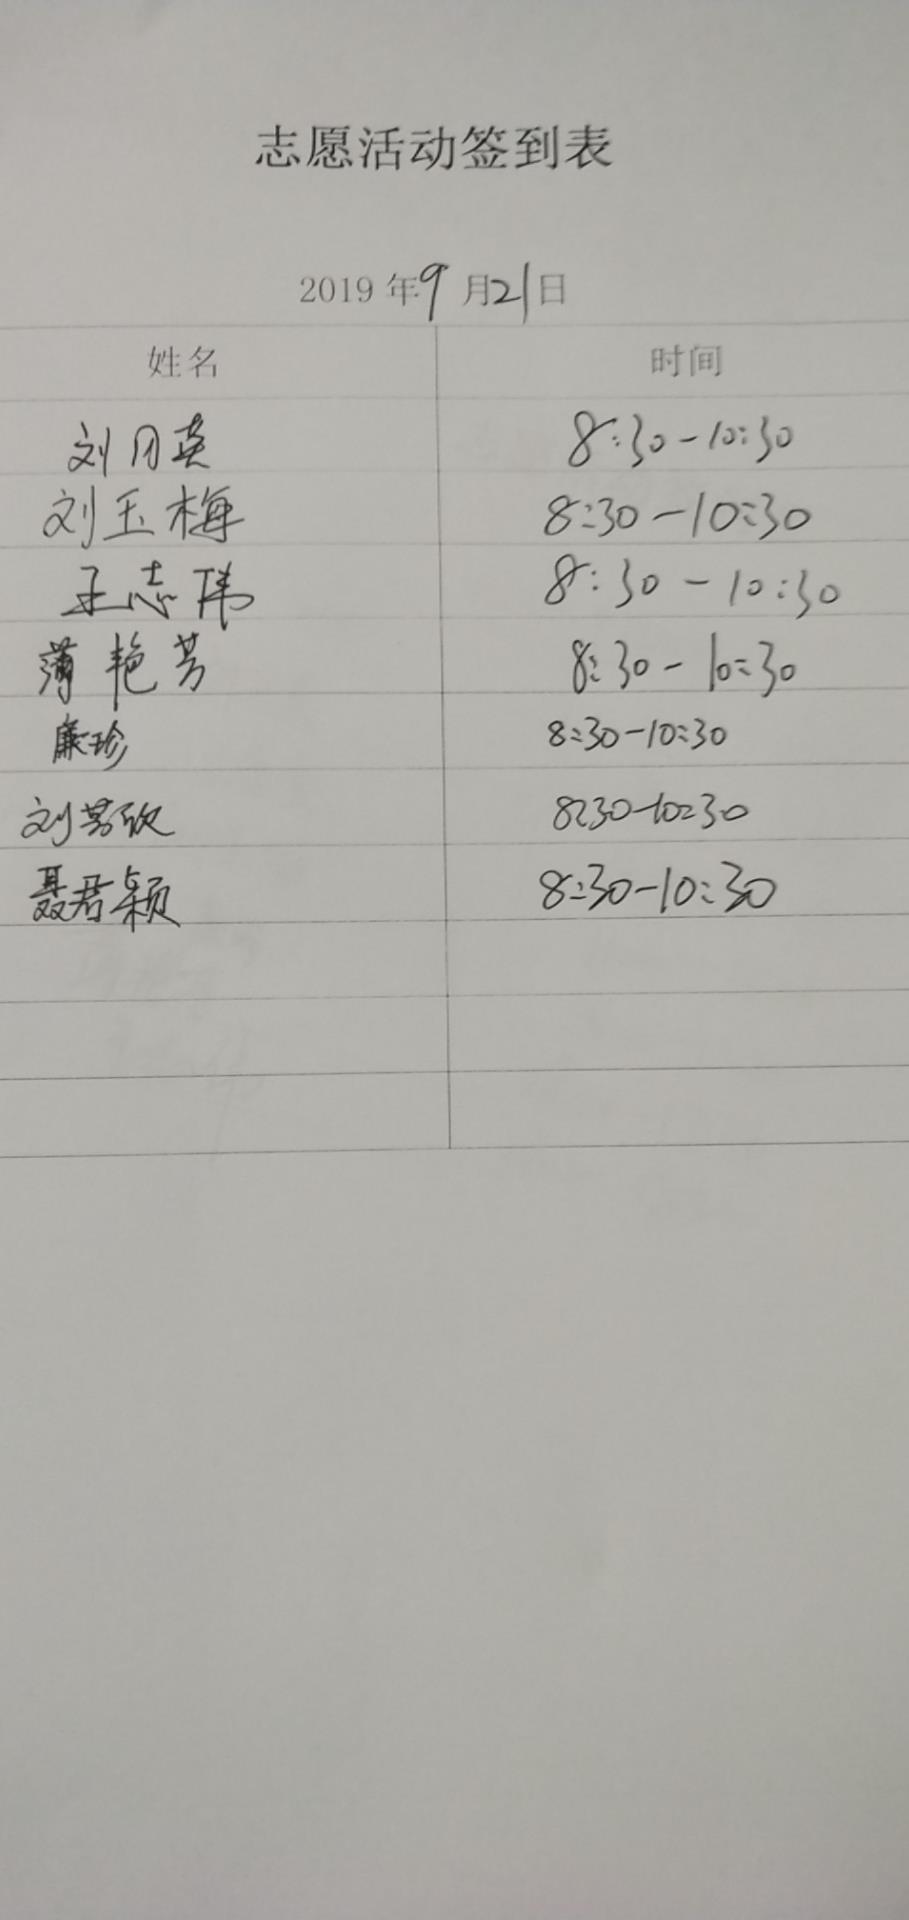 志愿活动签到表
2019年9月21日
姓名 时间
刘月英 8:30-10:30
刘玉梅 8:30-10:30
王志伟 8:30-10:30
蒲艳芳 8:30-10:30
廉珍 8:30-10:30
刘芳欣 8:30-10:30
聂君颖 8:30-10:30